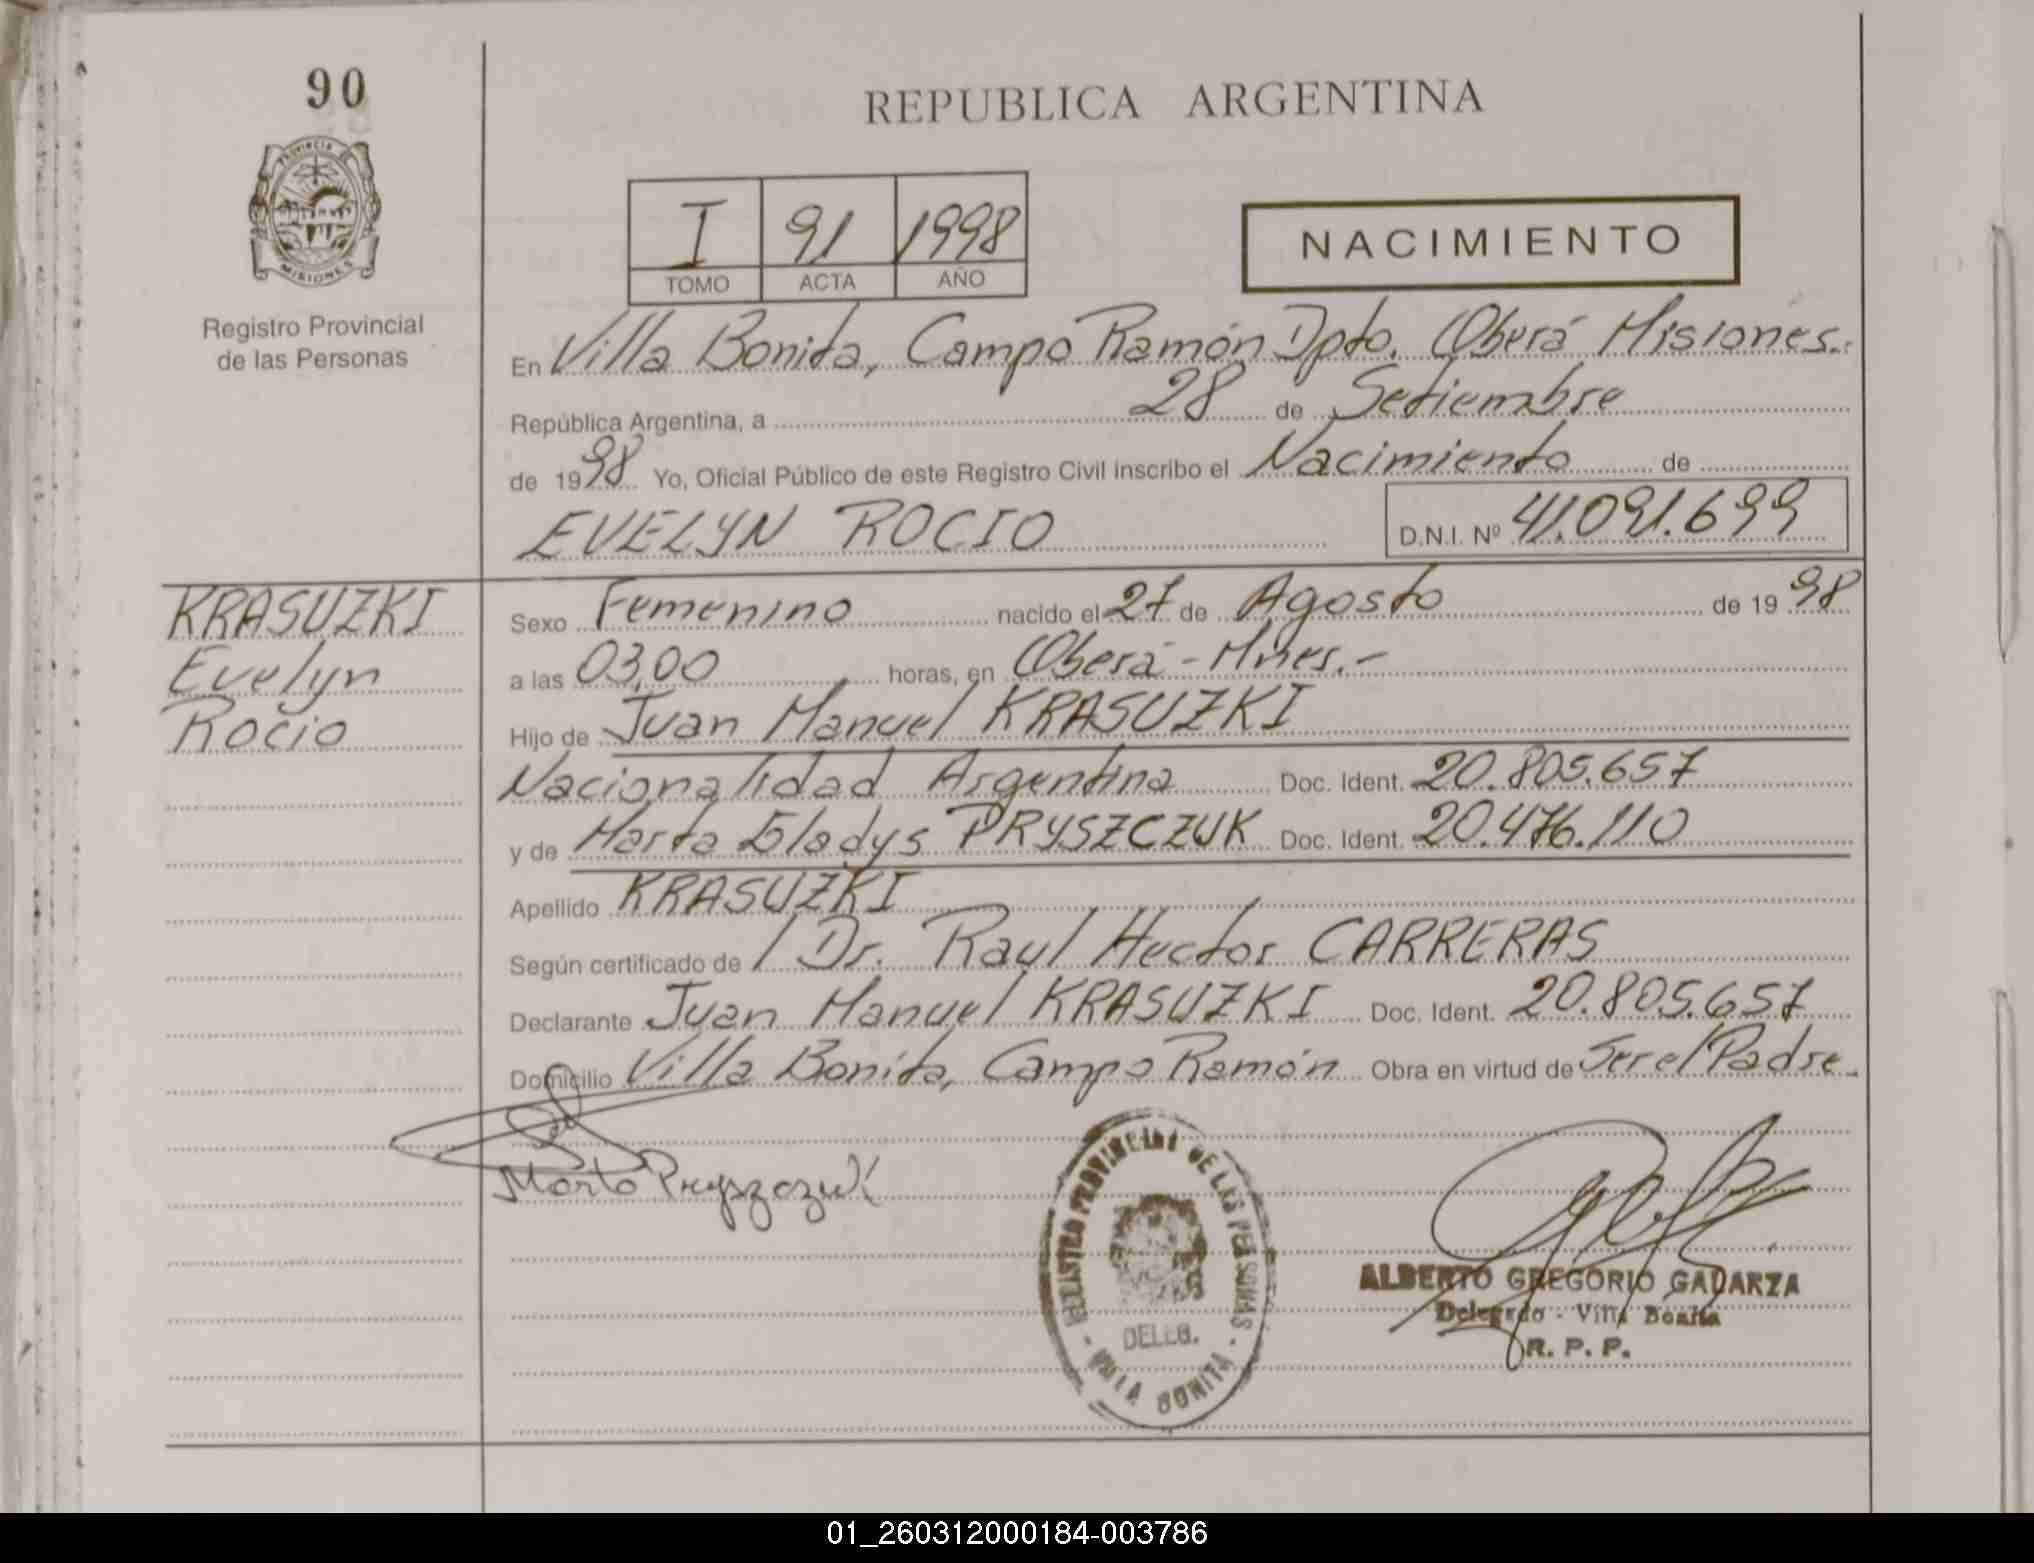 90
REPUBLICA ARGENTINA
PROVINCIA DE
MISIONES
Registro Provincial
de las Personas
I 91 1998
TOMO ACTA AÑO
NACIMIENTO
En Villa Bonita, Campo Ramón Dpto. Oberá Misiones.
República Argentina, a 28 de Setiembre
de 1998 Yo, Oficial Público de este Registro Civil inscribo el Nacimiento de
EVELYN ROCIO D.N.I. Nº 41.091.699
KRASUZKI
Evelyn
Rocio
Sexo Femenino nacido el 27 de Agosto de 1998
a las 03,00 horas, en Oberá - Mnes.-
Hijo de Juan Manuel KRASUZKI
Nacionalidad Argentina Doc. Ident. 20.805.657
y de Marta Gladys PRYSZCZUK Doc. Ident. 20.476.110
Apellido KRASUZKI
Según certificado de / Dr. Raul Hector CARRERAS
Declarante Juan Manuel KRASUZKI Doc. Ident. 20.805.657
Domicilio Villa Bonita, Campo Ramón Obra en virtud de Ser el Padre.
Marta Pryszczuk
REGISTRO PROVINCIAL DE LAS PERSONAS
DELEG.
- VILLA BONITA -
ALBERTO GREGORIO GAUARZA
Delegado - Villa Bonita
R. P. P.
01_260312000184-003786